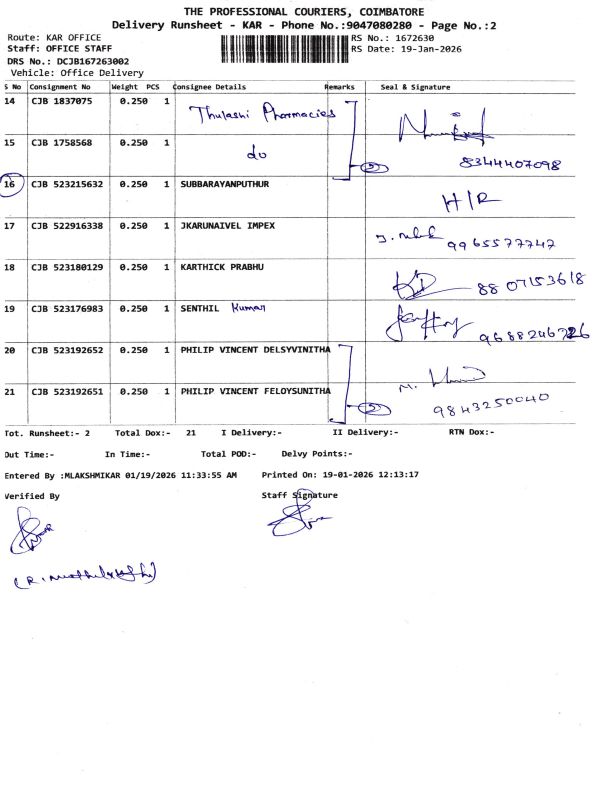 THE PROFESSIONAL COURIERS, COIMBATORE
Delivery Runsheet - KAR - Phone No.:9047080280 - Page No.:2
Route: KAR OFFICE RS No.: 1672630
Staff: OFFICE STAFF RS Date: 19-Jan-2026
DRS No.: DCJB167263002
Vehicle: Office Delivery
S No Consignment No Weight PCS Consignee Details Remarks Seal & Signature
14 CJB 1837075 0.250 1 Thulashi Pharmacies
15 CJB 1758568 0.250 1 do 2 8344407098
16 CJB 523215632 0.250 1 SUBBARAYANPUTHUR H/R
17 CJB 522916338 0.250 1 JKARUNAIVEL IMPEX 9965577747
18 CJB 523180129 0.250 1 KARTHICK PRABHU 8807153618
19 CJB 523176983 0.250 1 SENTHIL Kumar
20 CJB 523192652 0.250 1 PHILIP VINCENT DELSYVINITHA
21 CJB 523192651 0.250 1 PHILIP VINCENT FELOYSUNITHA 2 9843250040
Tot. Runsheet:- 2 Total Dox:- 21 I Delivery:- II Delivery:- RTN Dox:-
Out Time:- In Time:- Total POD:- Delvy Points:-
Entered By :MLAKSHMIKAR 01/19/2026 11:33:55 AM Printed On: 19-01-2026 12:13:17
Verified By Staff Signature